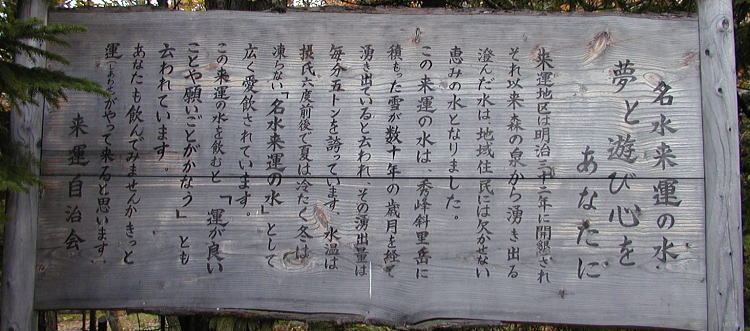 名水来運の水
夢と遊び心を
あなたに
来運地区は明治三十二年に開墾され
それ以来、森の泉から湧き出る
澄んだ水は地域住民には欠かせない
恵みの水となりました。
この来運の水は、秀峰斜里岳に
積もった雪が数十年の歳月を経て
湧き出ていると云われ、その湧出量は
毎分五トンを誇っています、水温は
摂氏六度前後で夏は冷たく冬は
凍らない「名水来運の水」として
広く愛飲されています。
この来運の水を飲むと「運が良い
ことや願いごとがかなう」とも
云われています。
あなたも飲んでみませんかきっと
運がやって来ると思います。
来運自治会